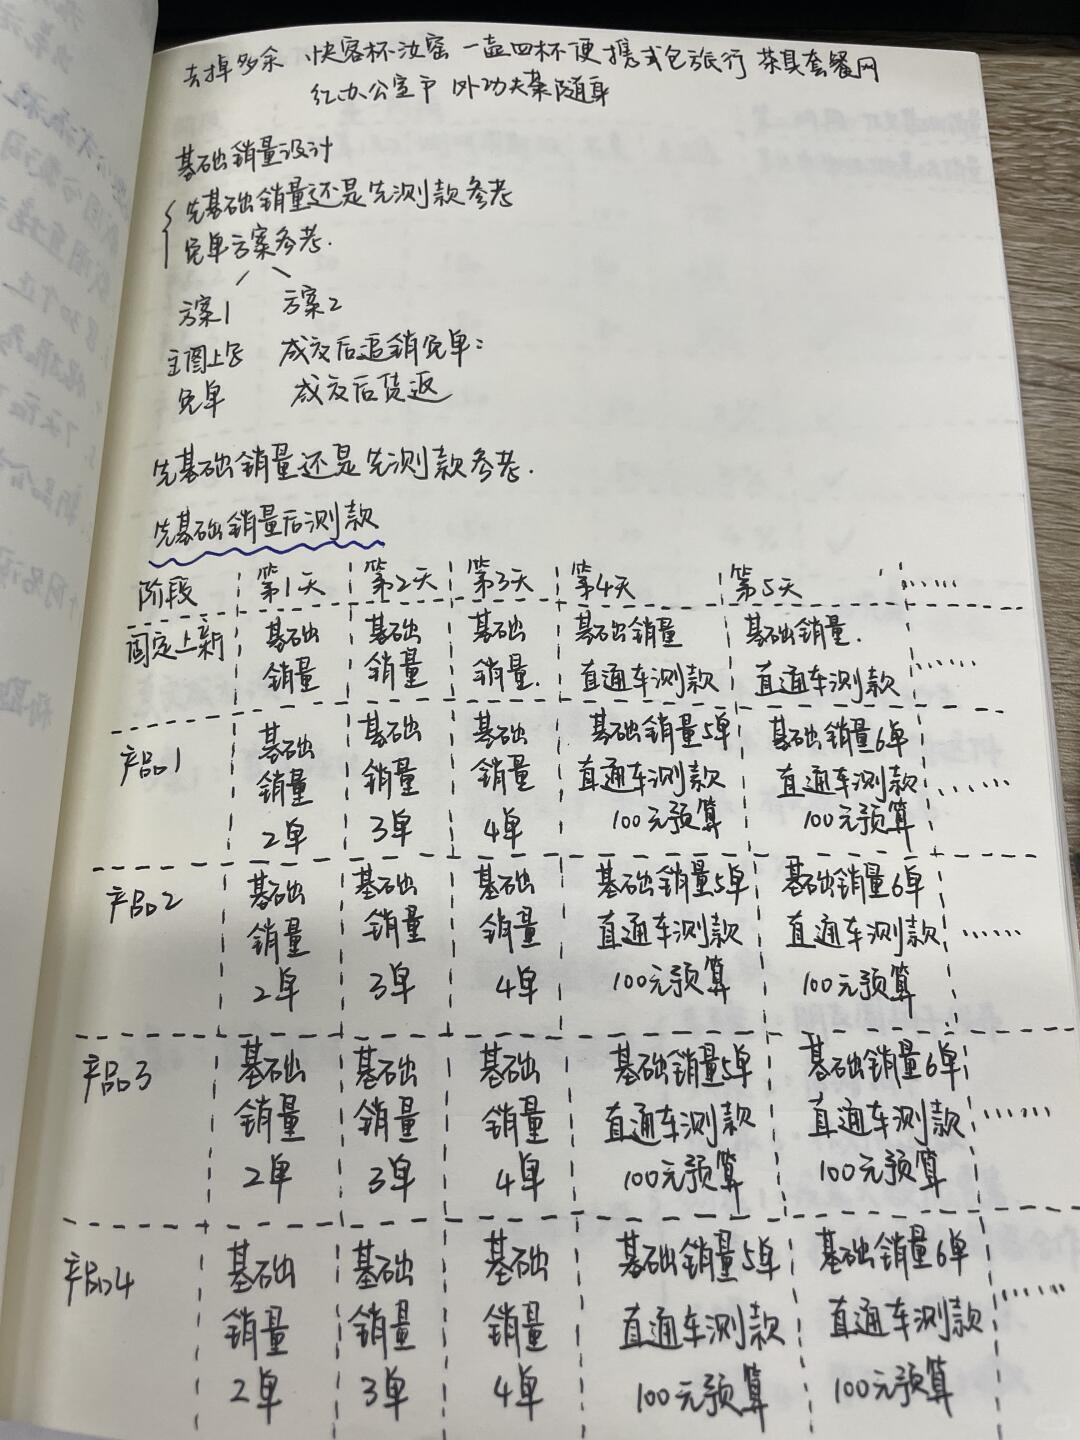 去掉多余 快客杯汝窑 一壶四杯便携式包旅行 茶具套餐网
红办公室户外功夫茶随身
基础销量设计
先基础销量还是先测款参考
免单方案参考.
方案1 方案2
主图上写 成交后追销免单:
免单 成交后货返
先基础销量还是先测款参考.
先基础销量后测款
阶段 第1天 第2天 第3天 第4天 第5天 ......
固定上新 基础 基础 基础 基础销量 基础销量.
销量 销量 销量. 直通车测款 直通车测款 ......
产品1 基础 基础 基础 基础销量5单 基础销量6单
销量 销量 销量 直通车测款 直通车测款 ......
2单 3单 4单 100元预算 100元预算
产品2 基础 基础 基础 基础销量5单 基础销量6单
销量 销量 销量 直通车测款 直通车测款 ......
2单 3单 4单 100元预算 100元预算
产品3 基础 基础 基础 基础销量5单 基础销量6单
销量 销量 销量 直通车测款 直通车测款 ......
2单 3单 4单 100元预算 100元预算
产品4 基础 基础 基础 基础销量5单 基础销量6单
销量 销量 销量 直通车测款 直通车测款 ......
2单 3单 4单 100元预算 100元预算